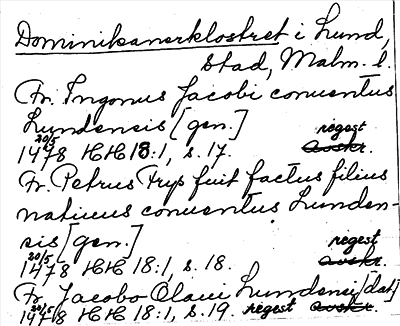 Dominikanerklostret i Lund,
stad, Malm. l.
Fr. Ingonus Jacobi conventus
Lundensis [gen.]
regest
20/5
1478 HH 18:1, s. 17. avskr.
Fr. Petrus Tryp fuit factus filius
nativus conventus Lunden-
sis [gen.]
regest
20/5
1478 HH 18:1, s. 18. avskr.
Fr. Jacobo Olavi Lundensi [dat]
20/5
1478 HH 18:1, s. 19. regest avskr.